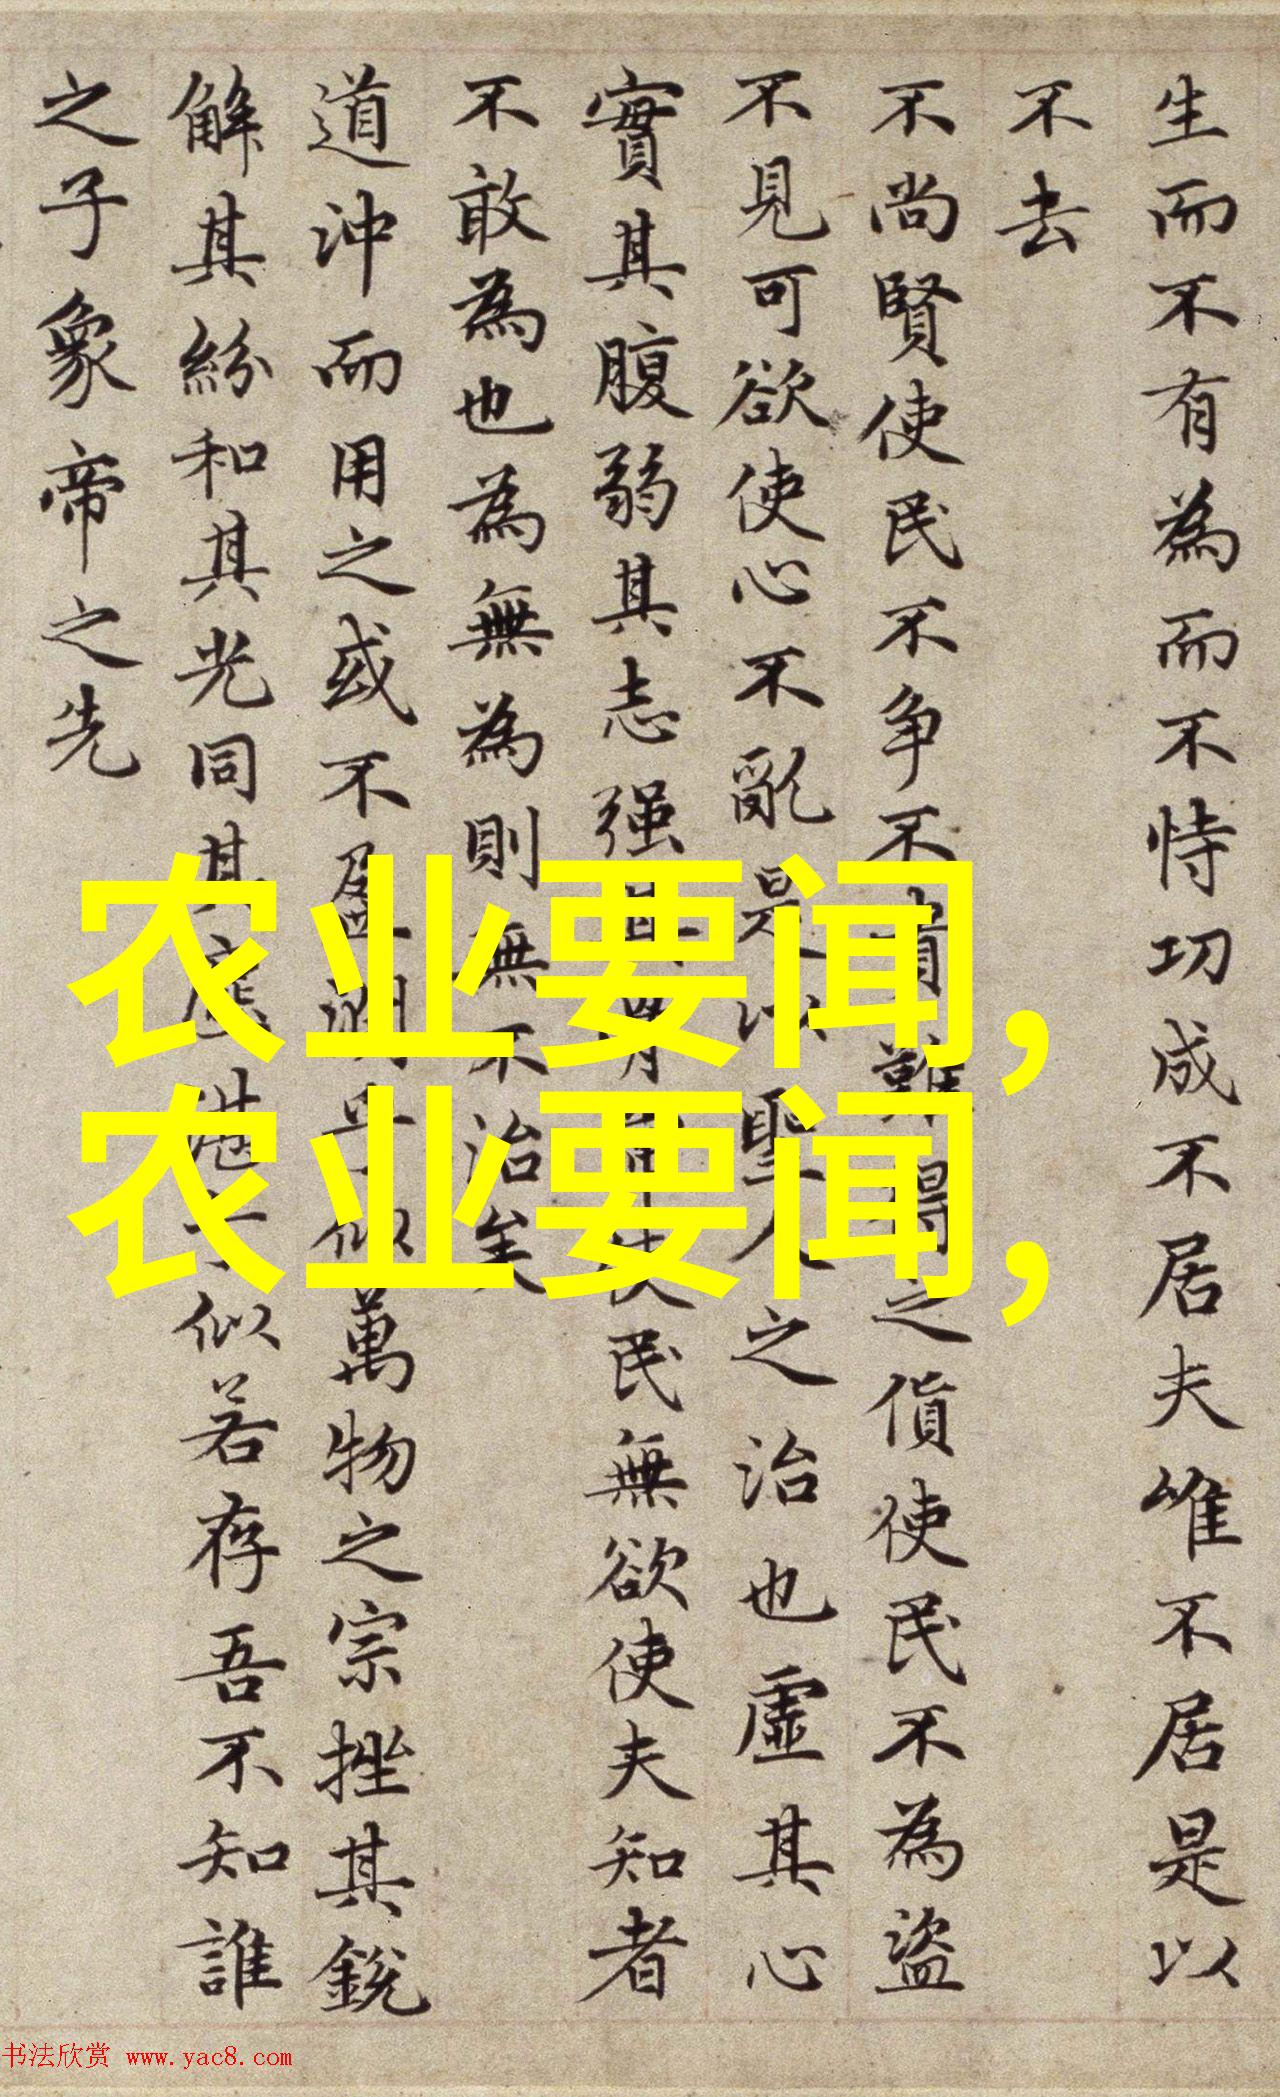 生而不有為而不恃功成不居夫唯不居是以
不去
不尚賢使民不争不貴難得之貨使民不為盜
不見可欲使心不亂是以聖人之治也虛其心
實其腹弱其志强其骨常使民無欲使夫知者
不敢為也為無為則無不治矣
道沖而用之或不盈淵乎似萬物之宗挫其銳
解其紛和其光同其塵湛兮似若存吾不知誰
之子象帝之先
农业要闻,
农业要闻,
书法欣赏 www.yac8.com